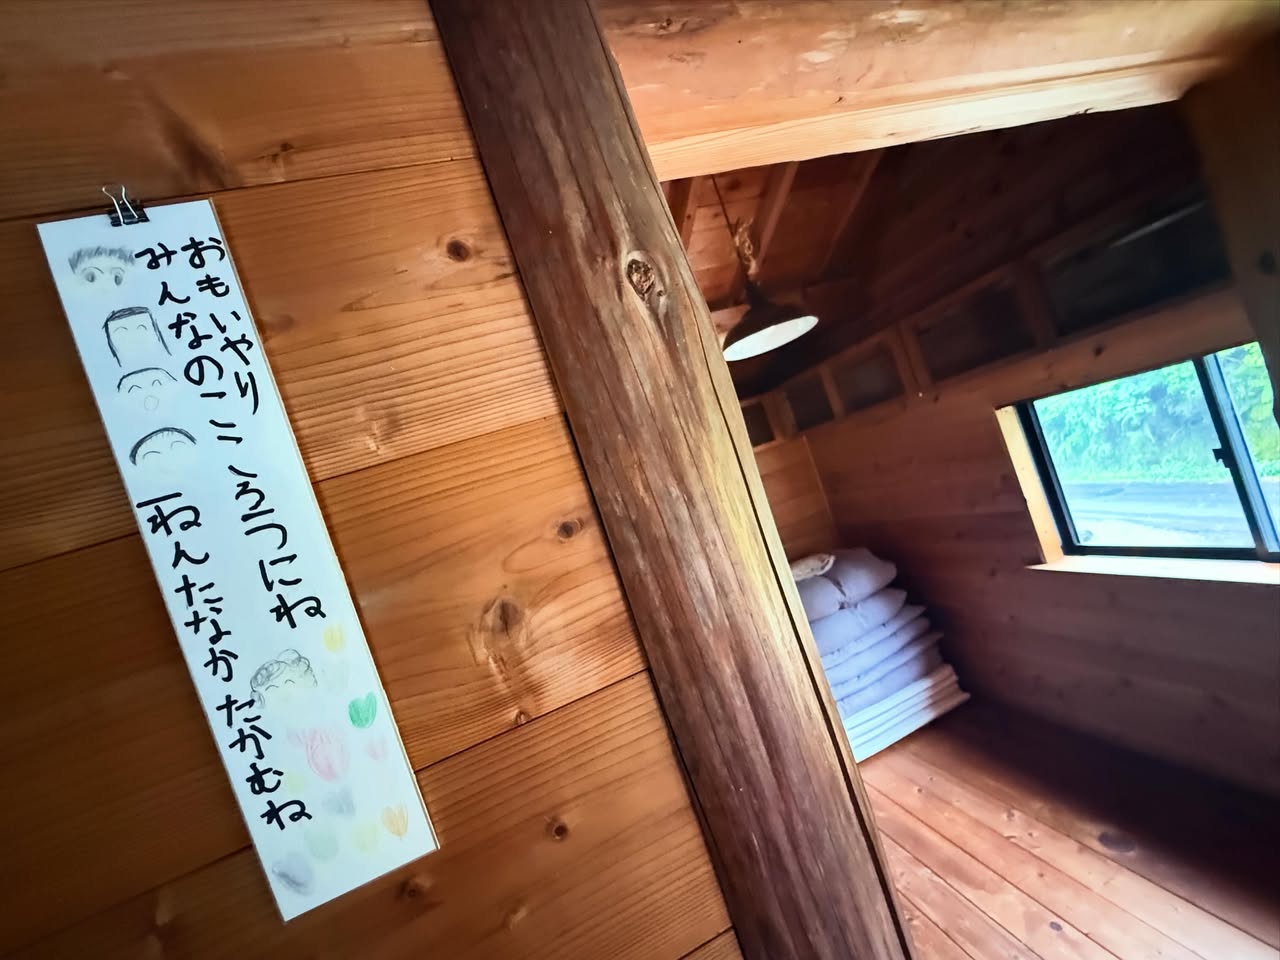 おもいやり
みんなのこゝろつにね
一ねんたなかたかむね